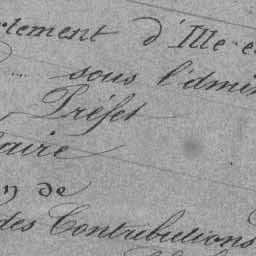 rtement d'Ille e
sous l'admin
, Préfet
aire
n de
des Contributions